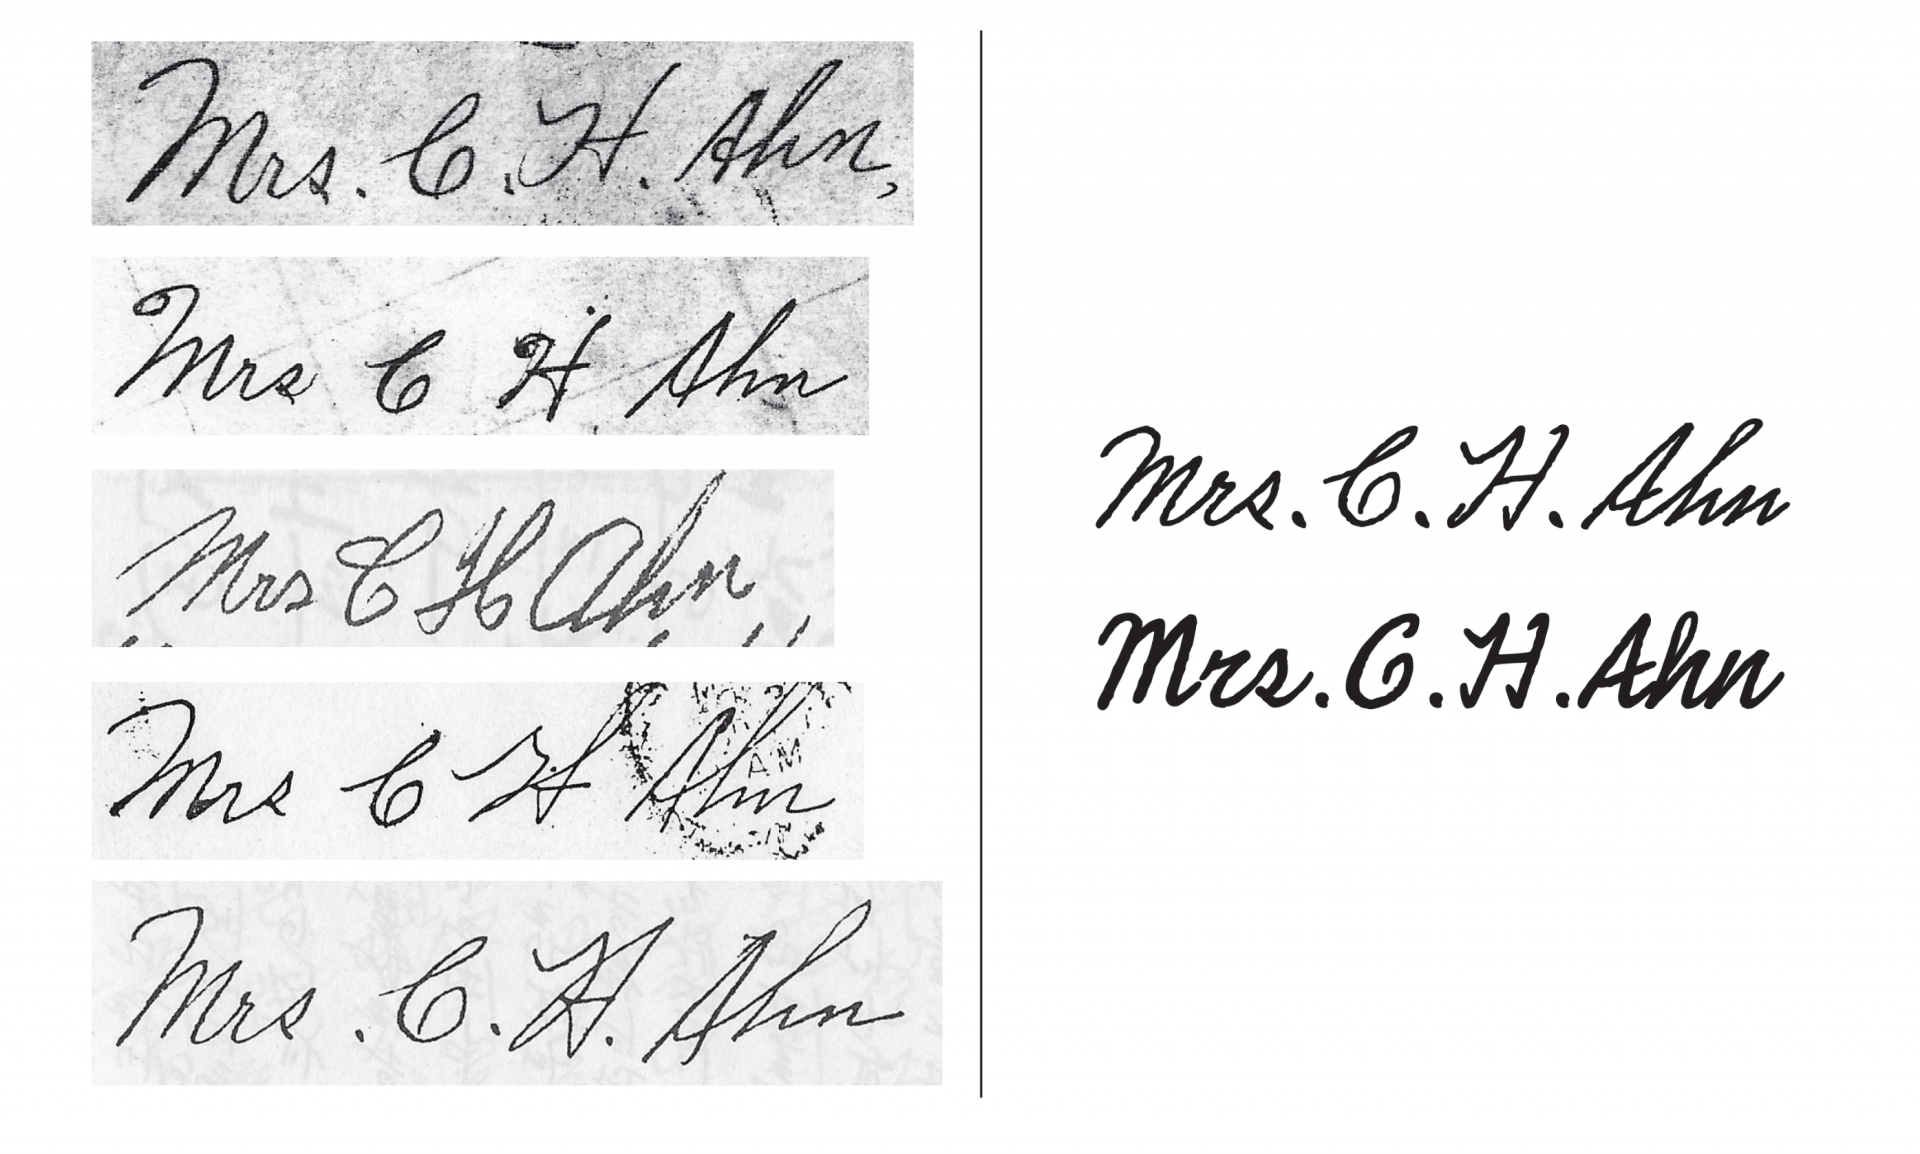 Mrs. C. H. Ahn,
Mrs C H Ahn
Mrs C H Ahn
Mrs C H Ahn
AM
Mrs. C. H. Ahn
Mrs. C. H. Ahn
Mrs. C. H. Ahn